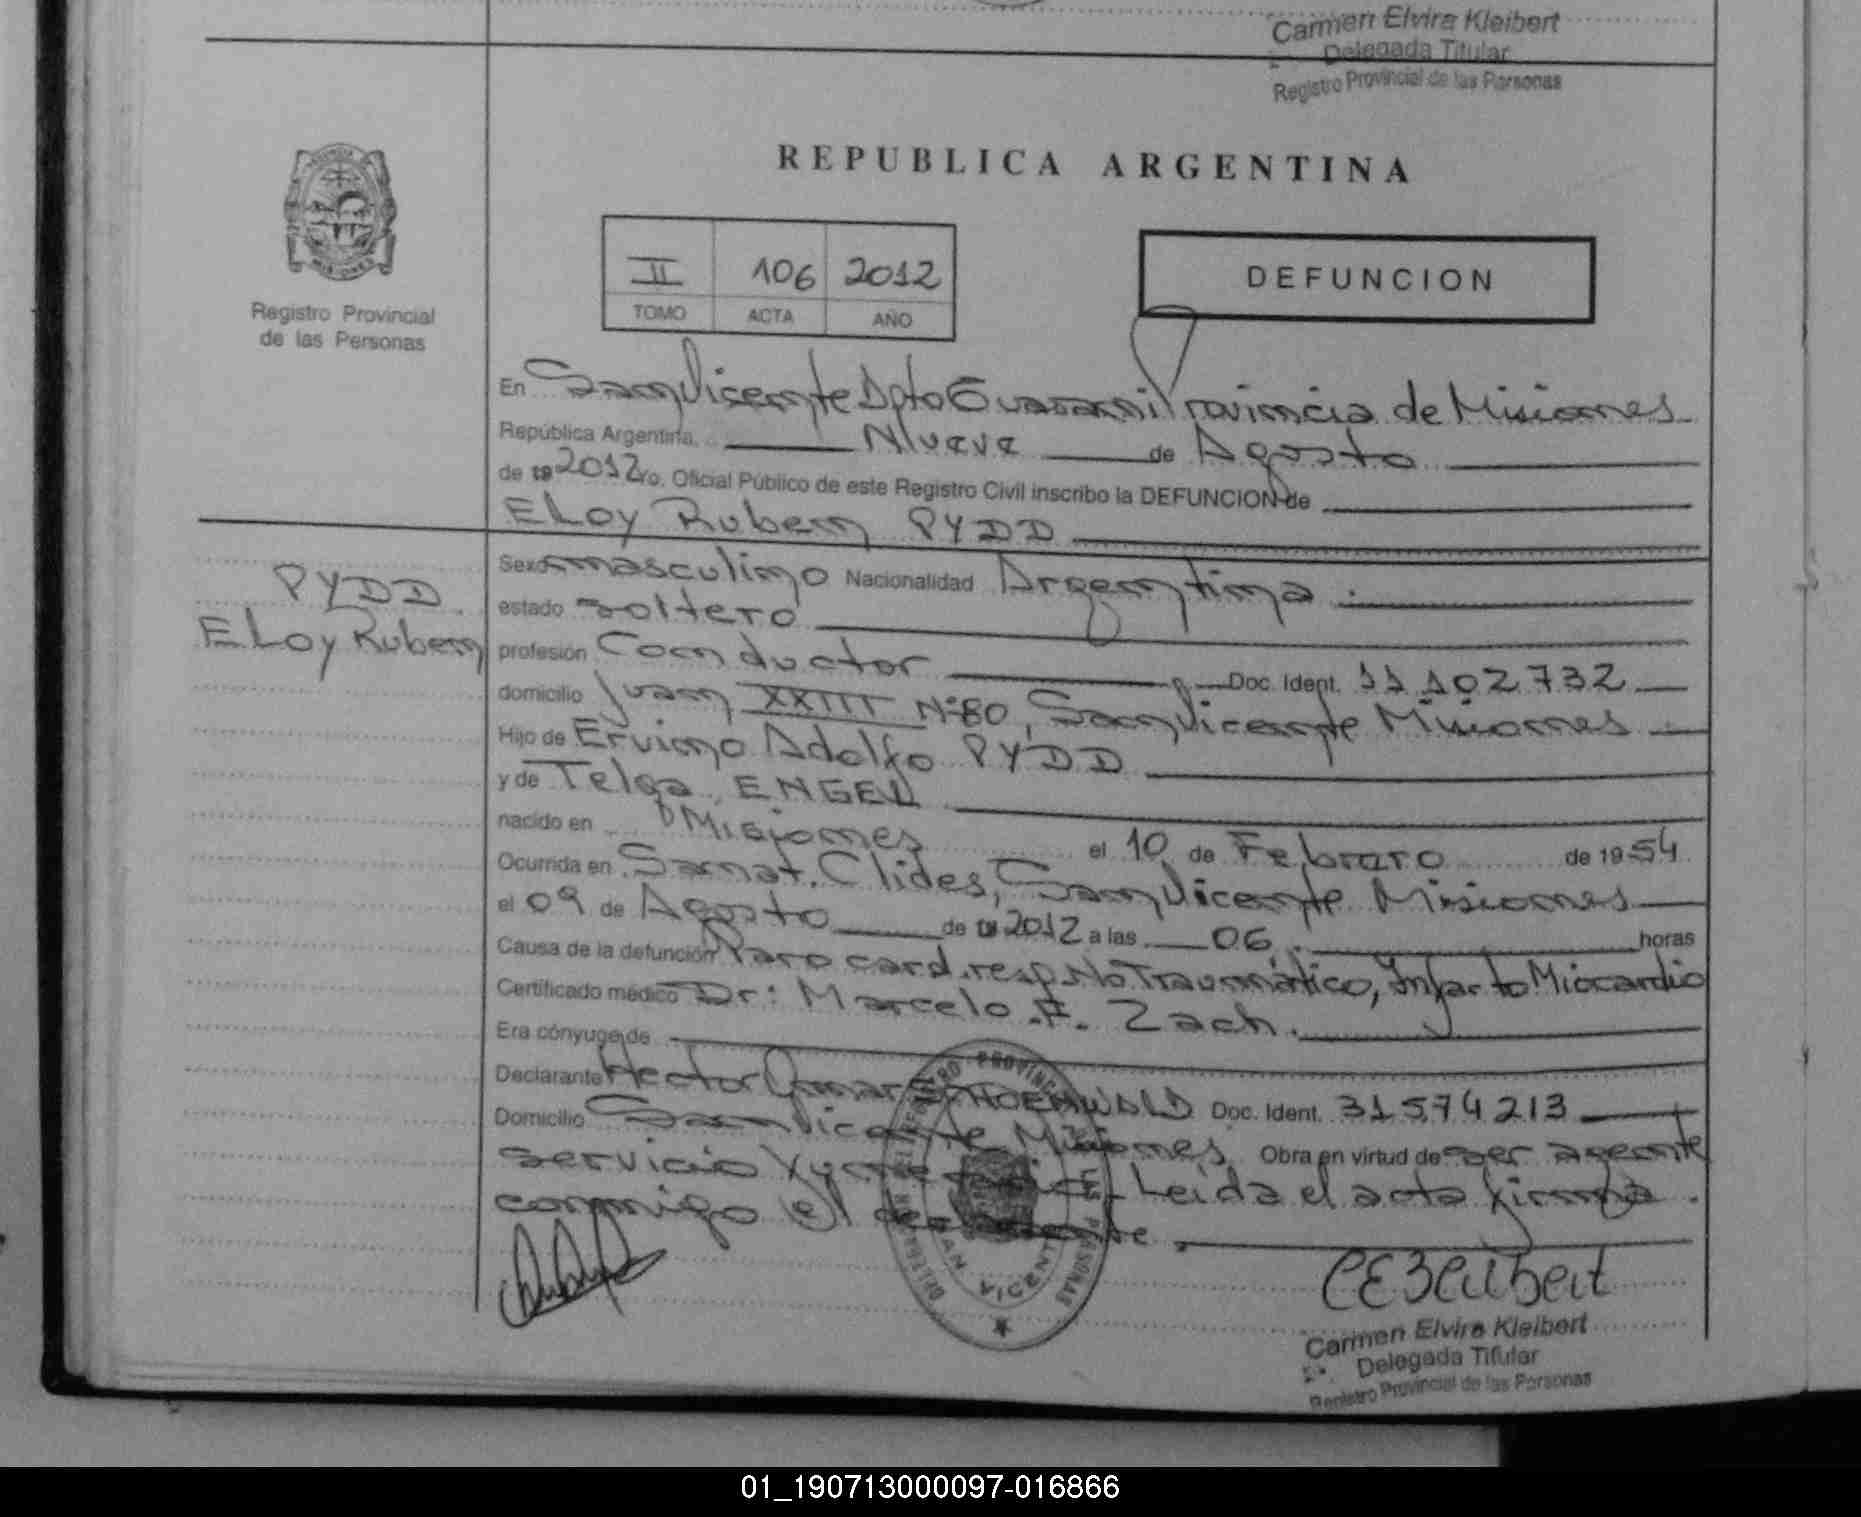 Carmen Elvira Kleibert
Delegada Titular
Registro Provincial de las Personas
REPUBLICA ARGENTINA
II 106 2012
TOMO ACTA AÑO
DEFUNCION
MISIONES
Registro Provincial
de las Personas
En San Vicente Dpto Guarani Provincia de Misiones
República Argentina, Nueve de Agosto
de 19 2012 Yo, Oficial Público de este Registro Civil inscribo la DEFUNCION de
ELoy Ruben PYDD
PYDD
ELoy Ruben
Sexo masculino Nacionalidad Argentina
estado soltero
profesión Conductor Doc. Ident. 11 102 732
domicilio Juan XXIII Nº 80, San Vicente Misiones
Hijo de Ervino Adolfo PYDD
y de Telga ENGEL
nacido en Misiones el 10 de Febraro de 1954
Ocurrida en Sanat. Clides, San Vicente Misiones
el 09 de Agosto de 19 2012 a las 06 horas
Causa de la defunción Paro card. resp. No Traumático, Infarto Miocardio
Certificado médico Dr: Marcelo. F. Zach.
Era cónyuge de
Declarante Hector Omar Doc. Ident. 31574213
Domicilio San Vicente Misiones Obra en virtud de ser agente
servicio Leida el acta firma
conmigo el declarante.
REGISTRO PROVINCIAL DE LAS PERSONAS
SAN VICENTE
CEKleibert
Carmen Elvira Kleibert
Delegada Titular
Registro Provincial de las Personas
01_190713000097-016866